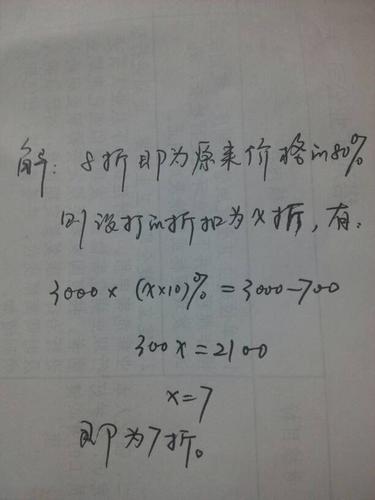 解：8折即为原来价格的80%
则设打的折扣为x折，有：
3000×(x×10)%=3000-700
300x=2100
x=7
即为7折。